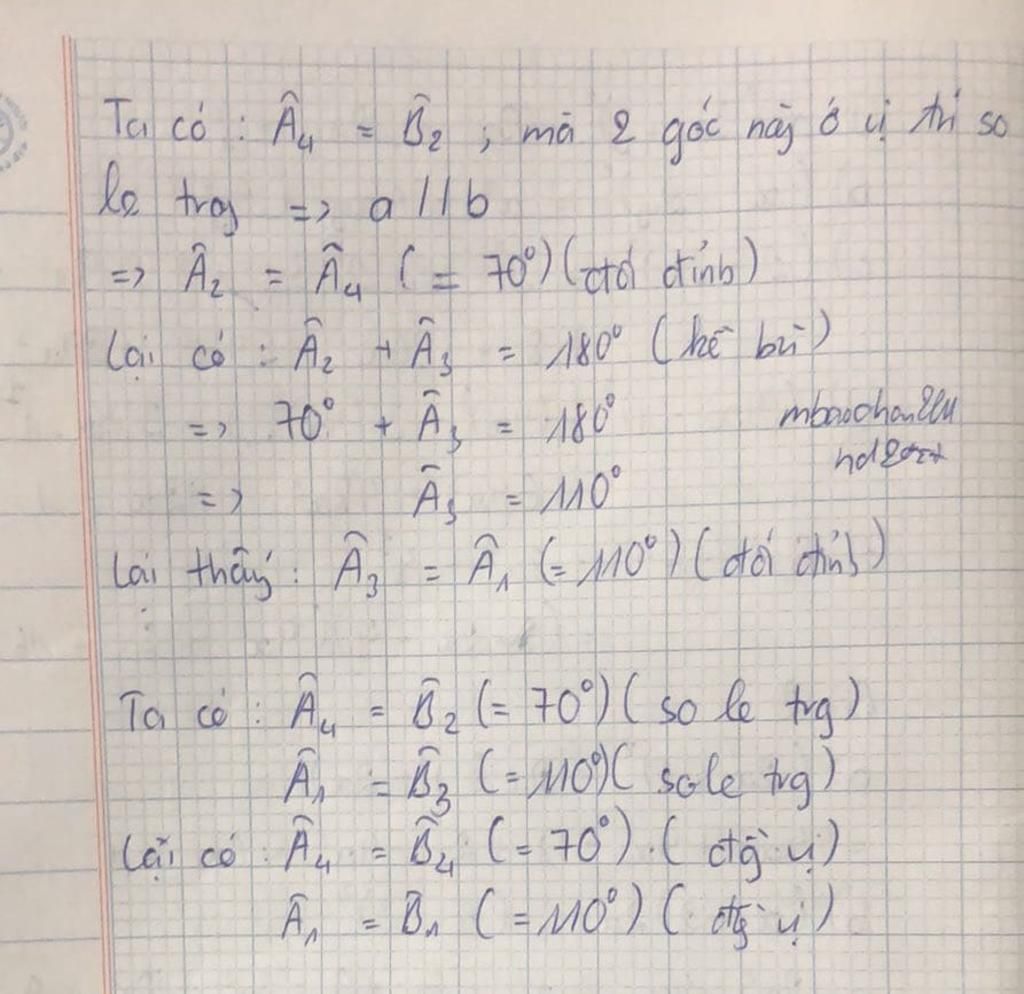 Ta có : Â₄ = B̂₂ , mà 2 góc này ở vị trí so
le trog => a // b
=> Â₂ = Â₄ (= 70°) (đối đỉnh)
Lại có : Â₂ + Â₃ = 180° (kề bù)
=> 70° + Â₃ = 180°
=> Â₃ = 110°
Lại thấy : Â₃ = Â₁ (= 110°) (đối đỉnh)
Ta có : Â₄ = B̂₂ (= 70°) ( so le trg )
Â₁ = B̂₃ (= 110°) ( so le trg )
Lại có : Â₄ = B̂₄ (= 70°) . ( đg̀ vị )
Â₁ = B̂₁ (= 110°) ( đg̀ vị )